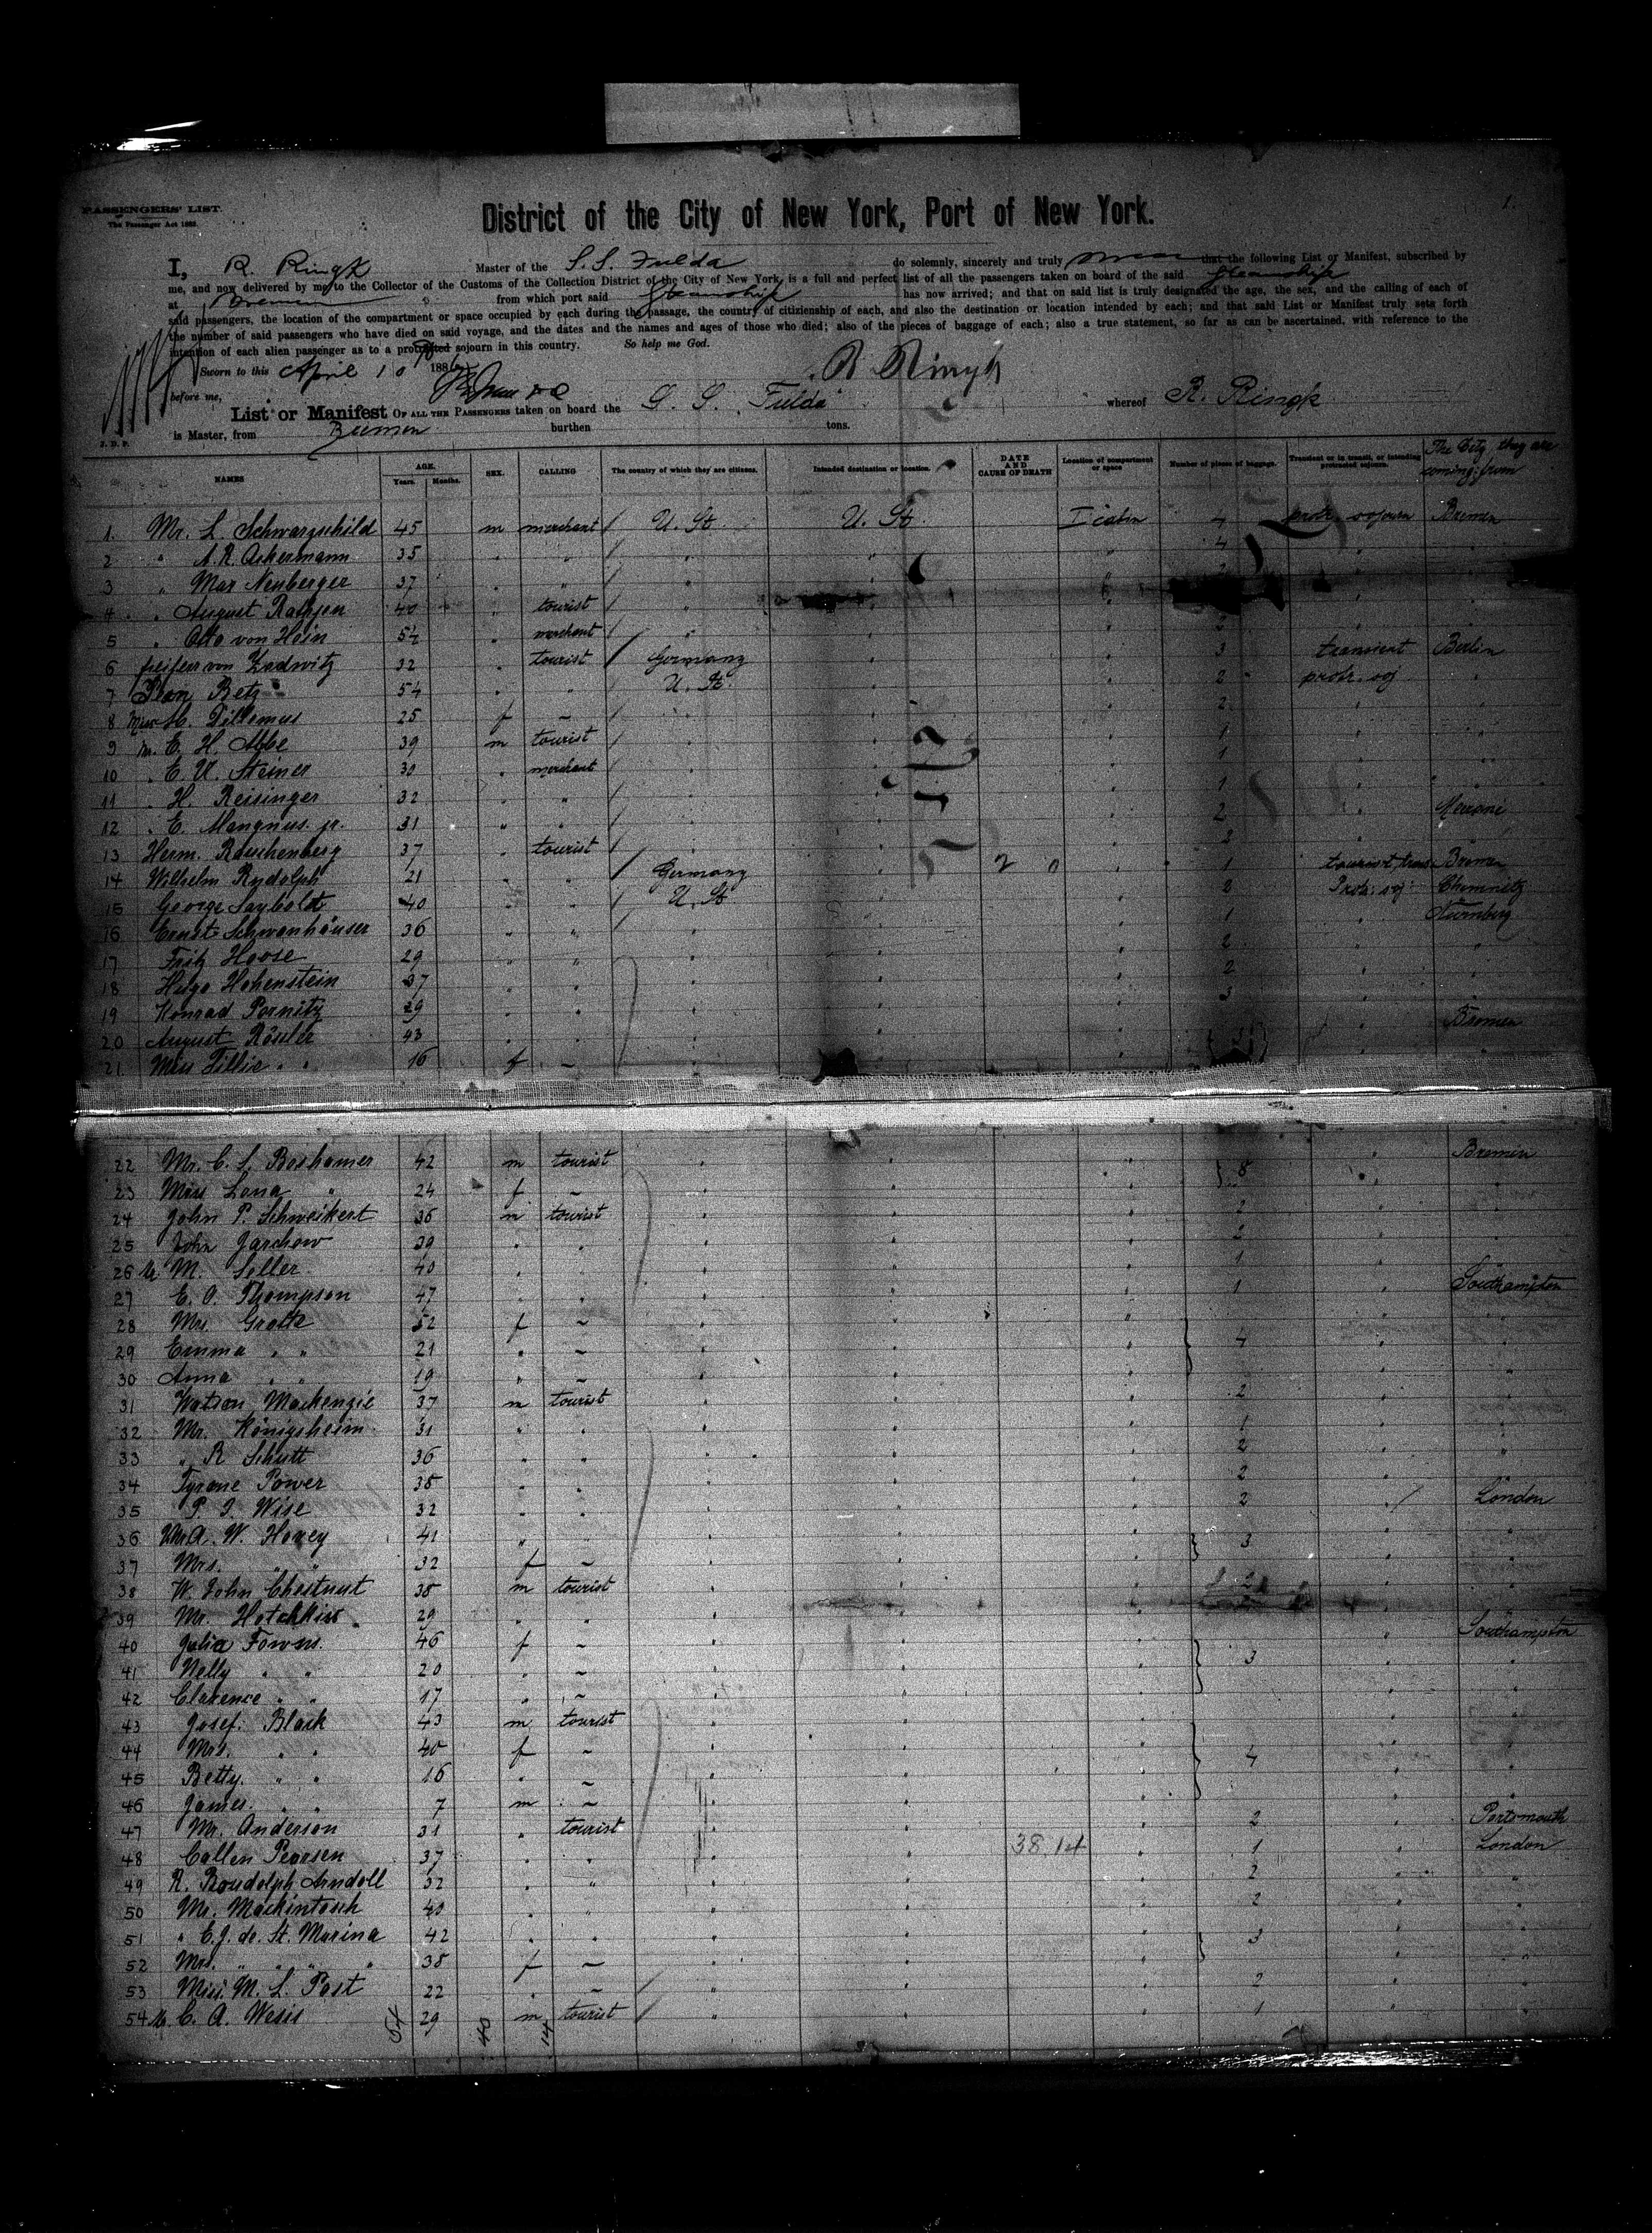 PASSENGERS' LIST.
The Passenger Act 1882
1.
District of the City of New York, Port of New York.
I, R. Ringk Master of the S.S. Fulda do solemnly, sincerely and truly swear that the following List or Manifest, subscribed by
me, and now delivered by me to the Collector of the Customs of the Collection District of the City of New York, is a full and perfect list of all the passengers taken on board of the said Steamship
at Bremen from which port said Steamship has now arrived; and that on said list is truly designated the age, the sex, and the calling of each of
said passengers, the location of the compartment or space occupied by each during the passage, the country of citizenship of each, and also the destination or location intended by each; and that said List or Manifest truly sets forth
the number of said passengers who have died on said voyage, and the dates and the names and ages of those who died; also of the pieces of baggage of each; also a true statement, so far as can be ascertained, with reference to the
intention of each alien passenger as to a protracted sojourn in this country. So help me God.
Sworn to this April 10 188 R Ringk
before me,
List or Manifest OF ALL THE PASSENGERS taken on board the S. S. Fulda whereof R. Ringk
is Master, from Bremen burthen tons.
J. D. P.
NAMES AGE. Years. Months. SEX. CALLING The country of which they are citizens. Intended destination or location. DATE AND CAUSE OF DEATH Location of compartment or space Number of pieces of baggage. Transient or in transit, or intending protracted sojourn. The City they are coming from
1. Mr. L. Schwarzschild 45 m merchant U. St. U. St. I cabin 4 protr. sojourn Bremen
2 " A. R. Ackermann 35 " " " " " 4 " "
3 " Max Neuberger 37 " " " " "
4 " August Rathjen 40 " tourist " "
5 " Otto von Hein 54 " merchant " " " 2 " "
6 freiherr von Zedwitz 32 " tourist Germany " " 3 transient Berlin
7 Betz 54 " " U. St. " " 2 protr. soj "
8 Miss Dillemus 25 f – " " " 2 " "
9 Mr. E. H. Abbe 39 m tourist " " " 1 " "
10 " E. U. Steiner 30 " merchant " " " 1 " "
11 " H. Reisinger 32 " " " " " 1 " "
12 " E. Mangnus jr. 31 " " " " " 2 "
13 Herm. Rauschenberg 37 " tourist " " " 2 "
14 Wilhelm Rudolph 21 " " Germany " 2 0 " 1 Bremen
15 George Sayboldt 40 " " U. St " " 2 Protr. soj Chemnitz
16 Ernst Schwanhäuser 36 " " " " " 1 " Nürnberg
17 Fritz Hoose 29 " " " " " 2 " "
18 Hugo Hohenstein 37 " " " " " 2 " "
19 Konrad Pornitz 29 " " " " " 3 "
20 August Rössler 43 " " " " " Bremen
21 Miss Tillie " " 16 f – " " " "
22 Mr. C. S. Boshamer 42 m tourist " " " 8 " Bremen
23 Miss Lona " 24 f – " " " " "
24 John P. Schweikert 36 m tourist " " " 2 " "
25 John Jarchow 39 " " " " " 2 " "
26 Mr M. Seller 40 " " " " " 1 " "
27 E. O. Thompson 47 " " " " " 1 " Southampton
28 Mrs. Grotte 52 f – " " " " "
29 Emma " " 21 " – " " " 4 " "
30 Anna " " 19 " – " " " " "
31 Watson Mackenzie 37 m tourist " " " 2 " "
32 Mr. Königsheim 31 " " " " " 1 " "
33 " R Schutt 36 " " " " " 2 " "
34 Tyrone Power 35 " " " " " 2 "
35 P. J. Wise 32 " " " " " 2 " London
36 Mr A. W. Hovey 41 " " " " " 3 " "
37 Mrs. " " 32 f – " " " " "
38 W. John Chestnut 38 m tourist " " " 2 " "
39 Mr. Hotchkiss 29 " " " "
40 Julia Fowns. 46 f – " " " " Southampton
41 Nelly " " 20 " – " " " 3 " "
42 Clarence " " 17 " – " " " " "
43 Josef. Black 43 m tourist " " " " "
44 Mrs. " " 40 f – " " " 4 " "
45 Betty. " " 16 " – " " " " "
46 James. " " 7 m – " " " " "
47 Mr. Anderson 31 " tourist " " " 2 " Portsmouth
48 Callen Pearsen 37 " " " " 38,14 " 1 " London
49 R. Roudolph Arndoll 32 " " " " " 2 " "
50 Mr. Mackintosch 40 " " " " " 2 " "
51 " E. J. de. St. Marina 42 " " " " " 3 " "
52 Mrs. " " " " 38 f – " " " " "
53 Miss. M. L. Post 22 " – " " " 2 " "
54 Mr. C. A. Wesis 29 m tourist " " " 1 " "
54 40 14